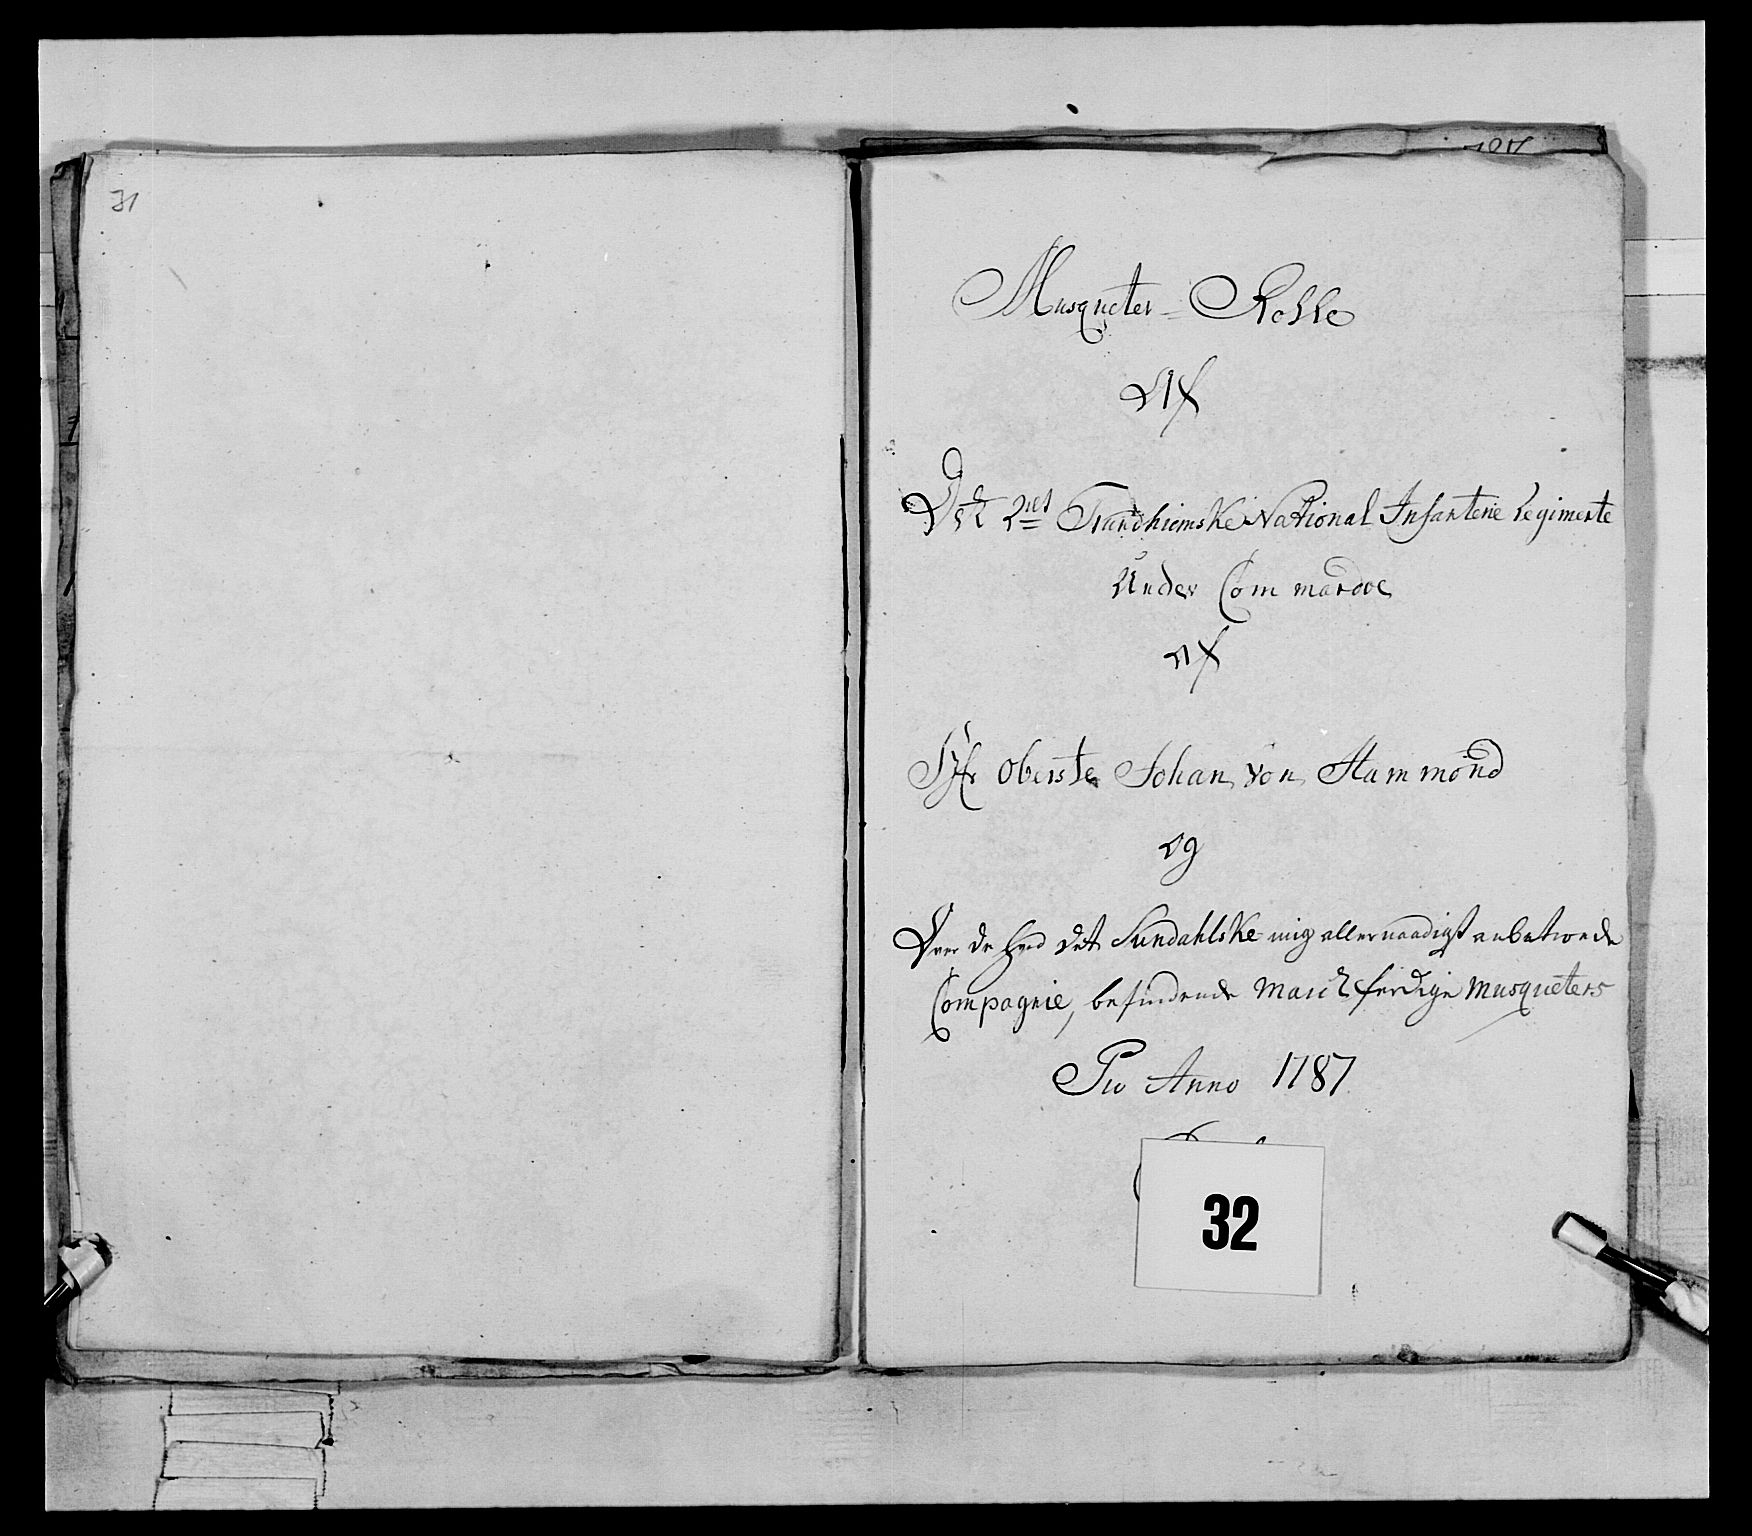 31
Musqueter = Rolle
Af
Det 2det Trundhiemske National Infanterie Regimente
Under Commandoe
Af
Hr Oberste Johan von Hammond
Og
Over de hved det Sundahlske mig allernaadigst anbetroede
Compagnie, befindende March ferdige Musqueters
Pro Anno 1787
32